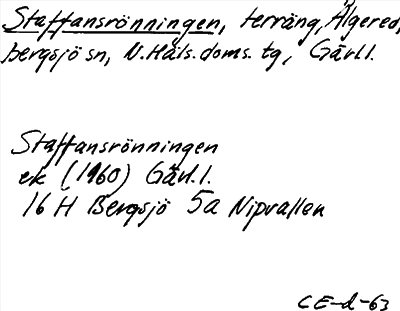 Staffansrönningen, terräng, Älgered,
Bergsjö sn, N. Häls. doms. tg, Gävl.l.
Staffansrönningen
ek (1960) Gävl.l.
16 H Bergsjö 5a Nipvallen
CE-d-63